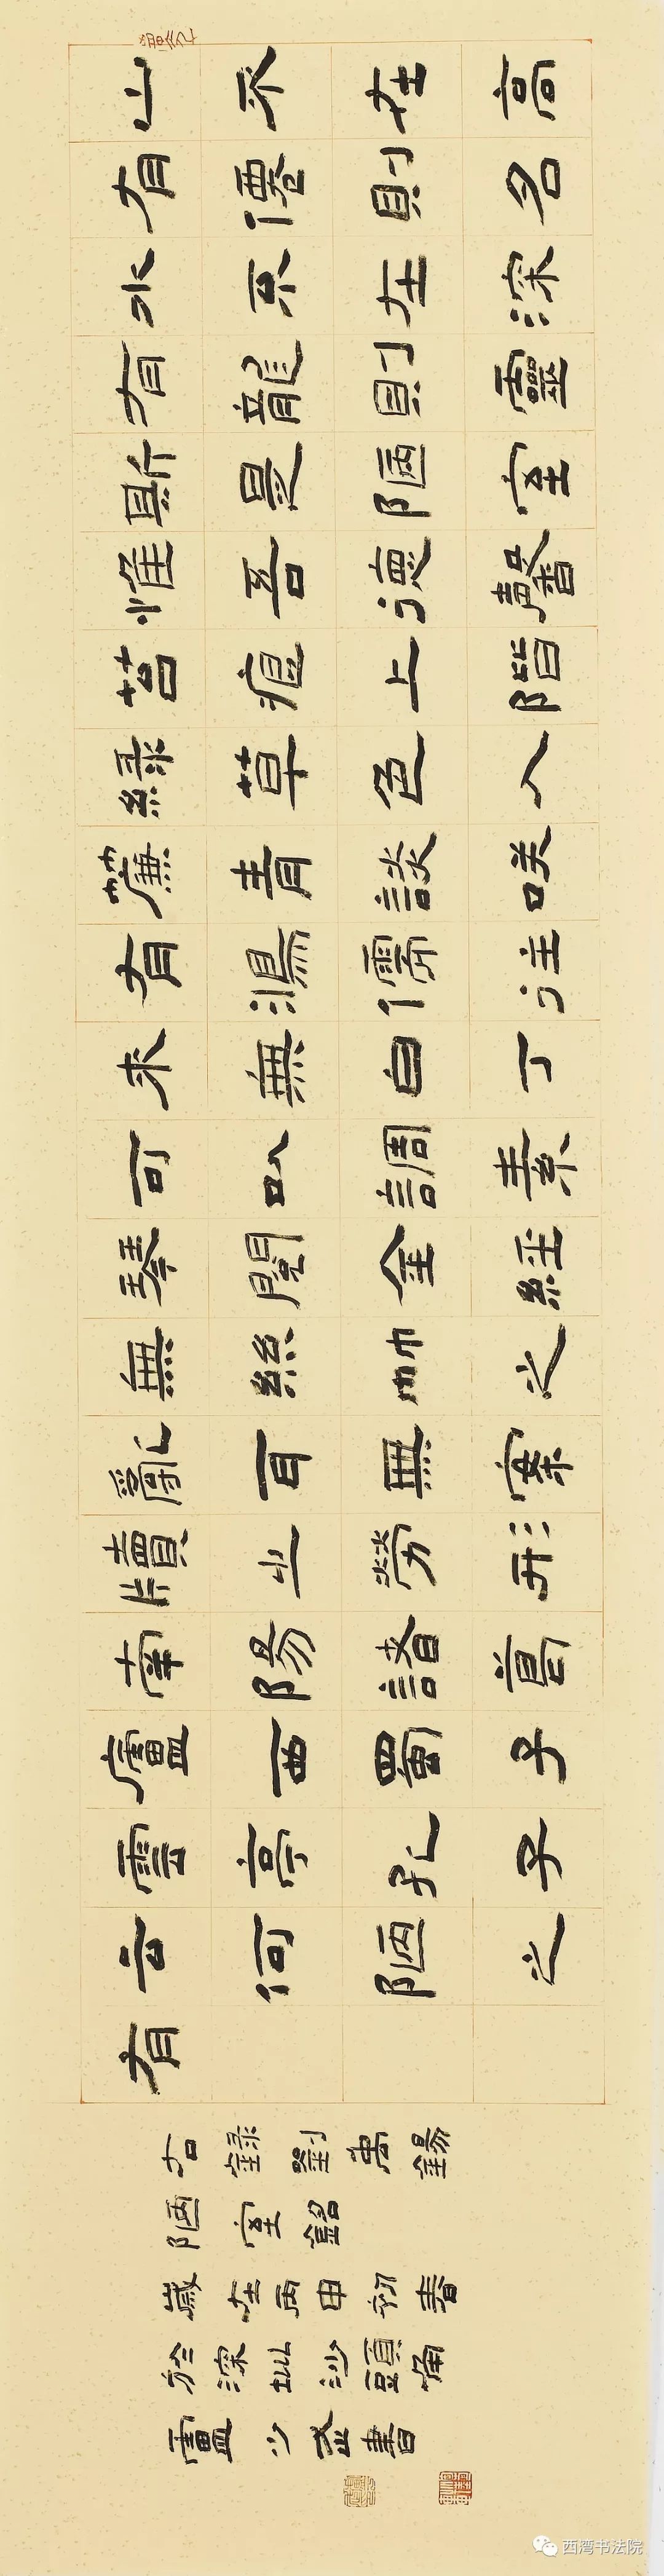 山不在高
有僊則名
水不在深
有龍則靈
斯是陋室
惟吾德馨
苔痕上階
綠草色入
簾青談咲
有鴻儒往
来無白丁
可以調素
琴閱金經
無絲竹之
亂耳無案
牘之勞形
南陽諸葛
廬西蜀子
雲亭孔子
云何陋之
有
右錄劉禹錫
陋室銘
歲在丙申初春
於深圳沙頭角
少書
西湾书法院